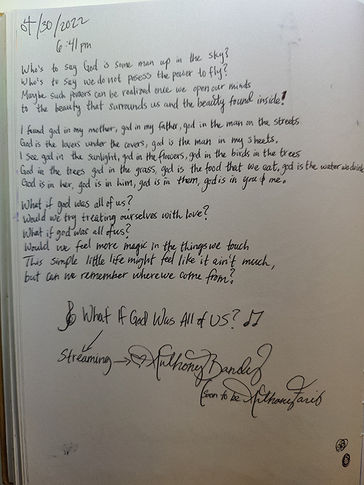 04/30/2022
6:41pm
Who's to say God is some man up in the sky?
Who's to say we do not posess the power to fly?
Maybe such powers can be realized once we open our minds
to the beauty that surrounds us and the beauty found inside!
I found god in my mother, god in my father, god in the man on the streets
God is the lovers under the covers, god is the man in my sheets.
I see god in the sunlight, god in the flowers, god in the birds in the trees
God in the trees god in the grass, god is the food that we eat, god is the water we drink
God is in her, god is in him, god is in them, god is in you & me.
What if god was all of us?
Would we try treating ourselves with love?
What if god was all of us?
Would we feel more magic in the things we touch
This simple little life might feel like it ain't much,
but can we remember where we come from?
What If God Was All of US?
Streaming → Anthoney Bandez
(soon to be Anthony Faris